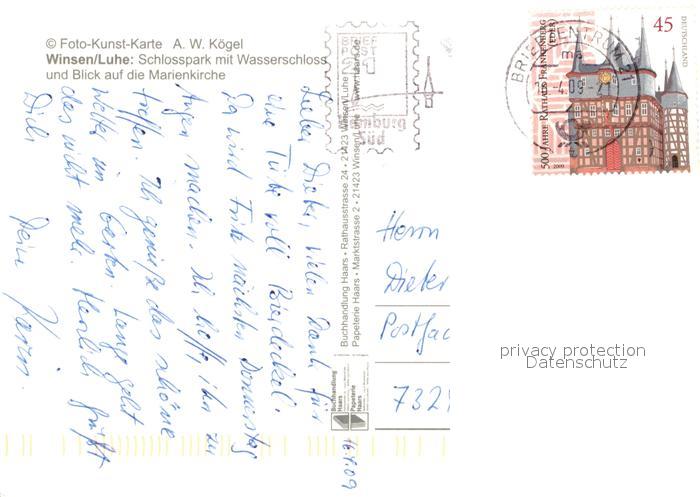 © Foto-Kunst-Karte A. W. Kögel
Winsen/Luhe: Schlosspark mit Wasserschloss
und Blick auf die Marienkirche
Lieber Dieter, vielen Dank für
eine Tüte voll Bierdeckel.
Da wird Fritz nächsten Donnerstag
Augen machen. Ich hoffe, ihn zu
treffen. Ich genieße das schöne
Wetter im Garten. Lange geht
das nicht mehr. Herzlich grüßt
Dich
Dein
16.9.09
Buchhandlung Haars • Rathausstrasse 24 • 21423 Winsen/Luhe
Papeterie Haars • Marktstrasse 2 • 21423 Winsen/Luhe • www.haars.de
Buchhandlung
Haars
Papeterie
Haars
BRIEF
POST
Hamburg
Süd
BRIEFZENTRUM
500 JAHRE RATHAUS FRANKENBERG
(EDER)
2009
45
DEUTSCHLAND
Herrn
Dieter
Postfac
732
privacy protection
Datenschutz